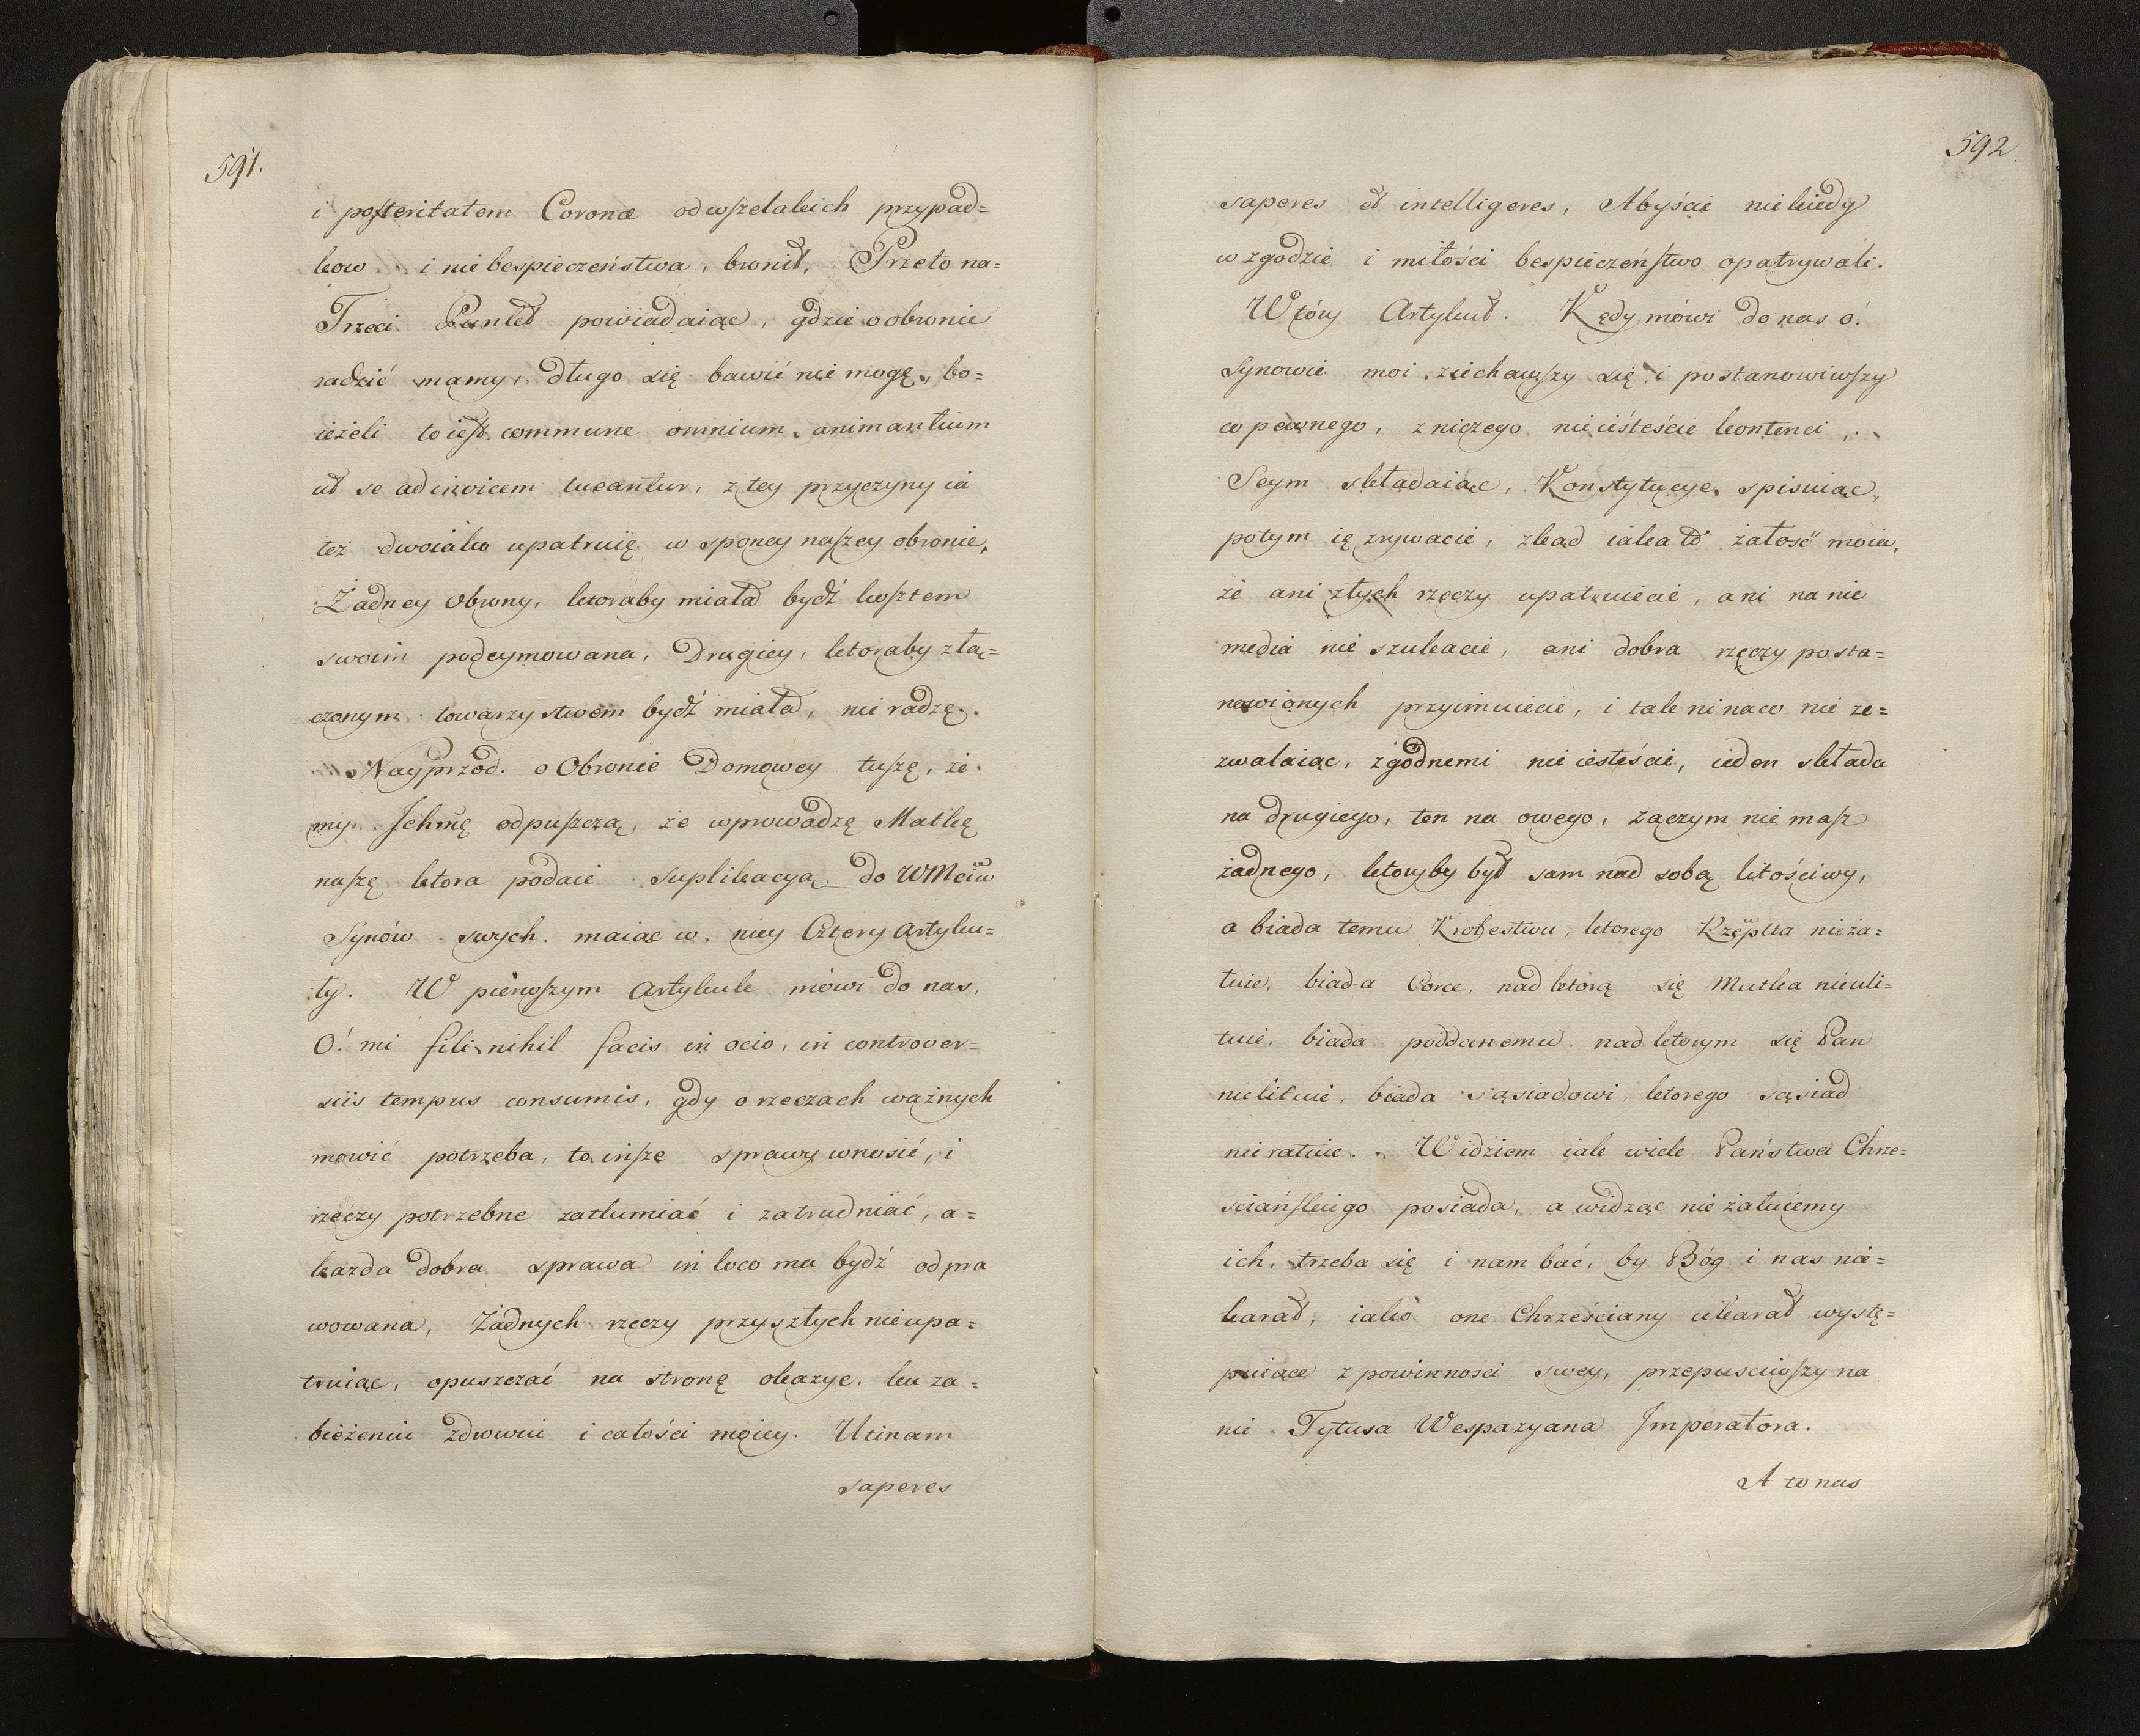 591.
i posteritatem Coronæ od wszelakich przypad=
kow i niebespieczeństwa, bronił, Przeto na=
Trzeci Punkt powiadaiąc, gdzie o obronie
radzić mamy, długo się bawić nie mogę, bo=
ieżeli to iest commune omnium animantium
ut se ad invicem tueantur, z tey przyczyny ia
też dwoiako upatruię w sponey naszey obronie,
Żadney Obrony, ktoraby miała bydź kosztem
swoim podeymowana, Drugiey, ktoraby złą=
czonym towarzystwem bydź miała, nie radzę.
Nayprzod. o Obronie Domowey tuszę, że
my Ichmę odpuszczą, że wprowadzę Matkę
naszę ktora podaie Suplikacyą do WMciw
Synów swych. maiąc w niey Cztery Artyku=
ty. W pierwszym Artykule mówi do nas,
O! mi fili nihil facis in ocio, in controver=
siis tempus consumis, gdy o rzeczach ważnych
mowić potrzeba, to insze sprawy wnosić, i
rzeczy potrzebne zatłumiać i zatrudniać, a=
każda dobra sprawa in loco ma bydź odpra
wowana, Żadnych rzeczy przyszłych nie upa=
truiąc, opuszczać na stronę okazye. ku za=
bieżeniu zdrowiu i całości moiey. Utinam
saperes
592.
saperes et intelligeres, Abyście niekiedy
w zgodzie i miłości bespieczeństwo opatrywali.
Wtóry Artykuł. Kędy mówi do nas o!
Synowie moi ziechawszy się i postanowiwszy
co pewnego, z niczego nie iésteście kontenci,
Seym składaiąc, Konstytucye spisuiąc,
potym ię zrywacie, zkąd iaka to żałość moia,
że ani złych rzeczy upatruiecie, ani na nie
media nie szukacie, ani dobra rzeczy posta=
nowionych przyimuiecie, i tak ni na co nie ze=
zwalaiąc, zgodnemi nie iesteście, ieden składa
na drugiego, ten na owego, zaczym nie masz
żadnego, ktoryby był sam nad sobą litościwy,
a biada temu Krolestwu, ktorego Rzęplta nieża=
łuie, biada Córce, nad ktorą się Matka nieuli=
tuie, biada poddanemu nad ktorym się Pan
nielituie, biada sąsiadowi ktorego sąsiad
nieratuie. Widziem iak wiele Państwa Chrze=
sciańskiego posiada, a widząc nie żałuiemy
ich, trzeba się i nam bać, by Bóg i nas nie=
karał, iako one Chrześciany ukarał wystę=
puiące z powinności swey, przepusciwszy na
nie Tytusa Wespazyana Imperatora.
A to nas